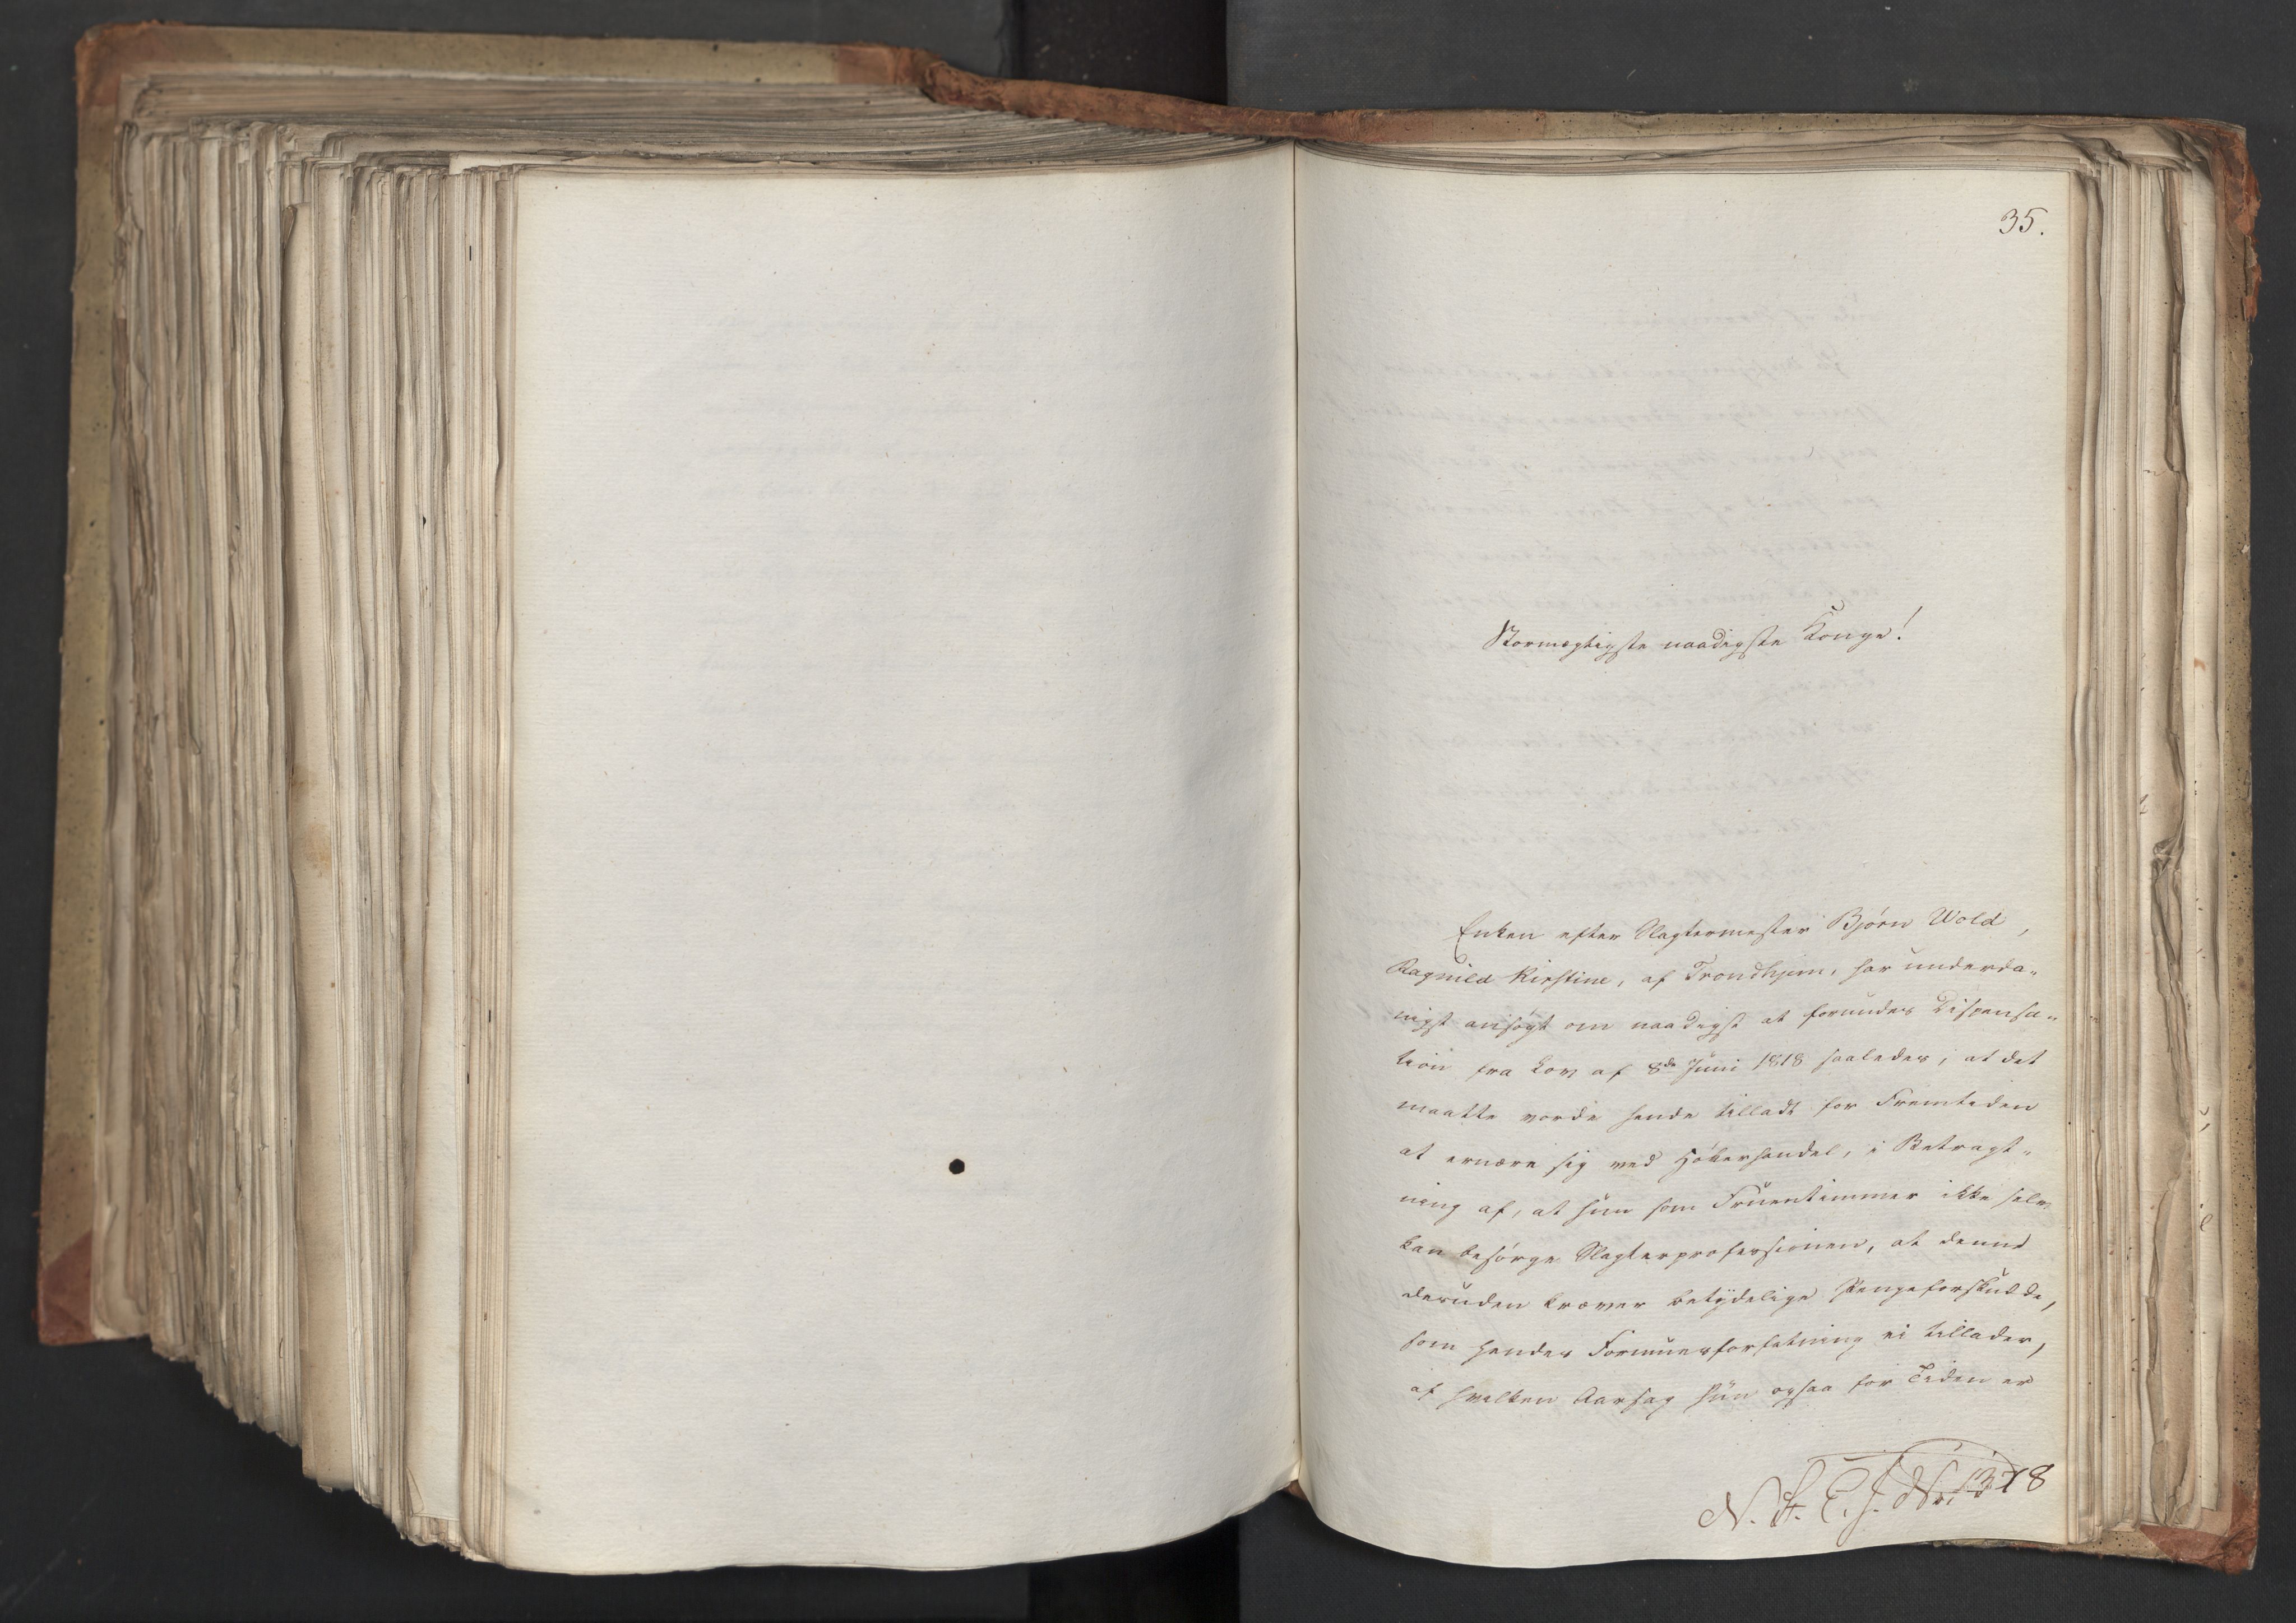 35.
Stormægtigste naadigste Konge!
Enken efter Slagtermester Bjørn Wold,
Ragnild Kirstine, af Trondhjem, har underda-
nigst ansøgt om naadigst at forundes Dispensa-
tion fra Lov af 8de Juni 1818 saaledes, at det
maatte vorde hende tilladt for Fremtiden
at ernære sig ved Høkerhandel, i Betragt-
ning af, at hun som Fruentimmer ikke selv
kan besørge Slagterprofessionen, at denne
desuden kræver betydelige Pengeforskudde,
som hendes Formuesforfatning ei tillader,
af hvilken Aarsag hun ogsaa for Tiden er
N. A. C. J. No. 1378